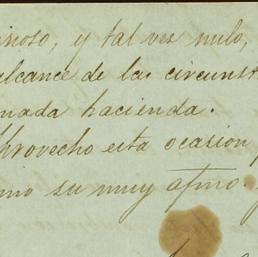 y tal vez nulo,
alcance de las circunst
mada hacienda.
Aprovecho esta ocasion
mo su muy afmo.